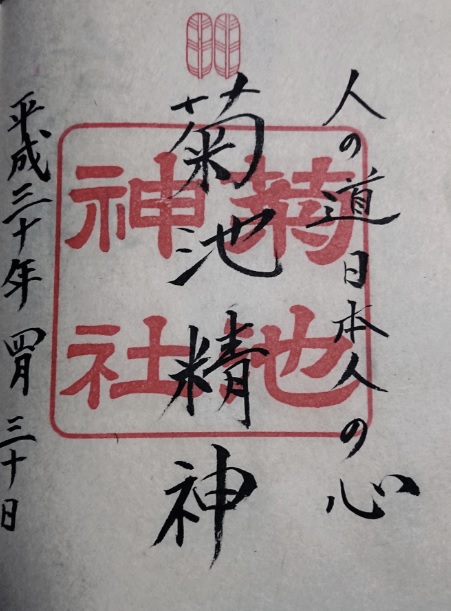 人の道日本人の心
菊池精神
菊池
神社
平成三十年四月三十日